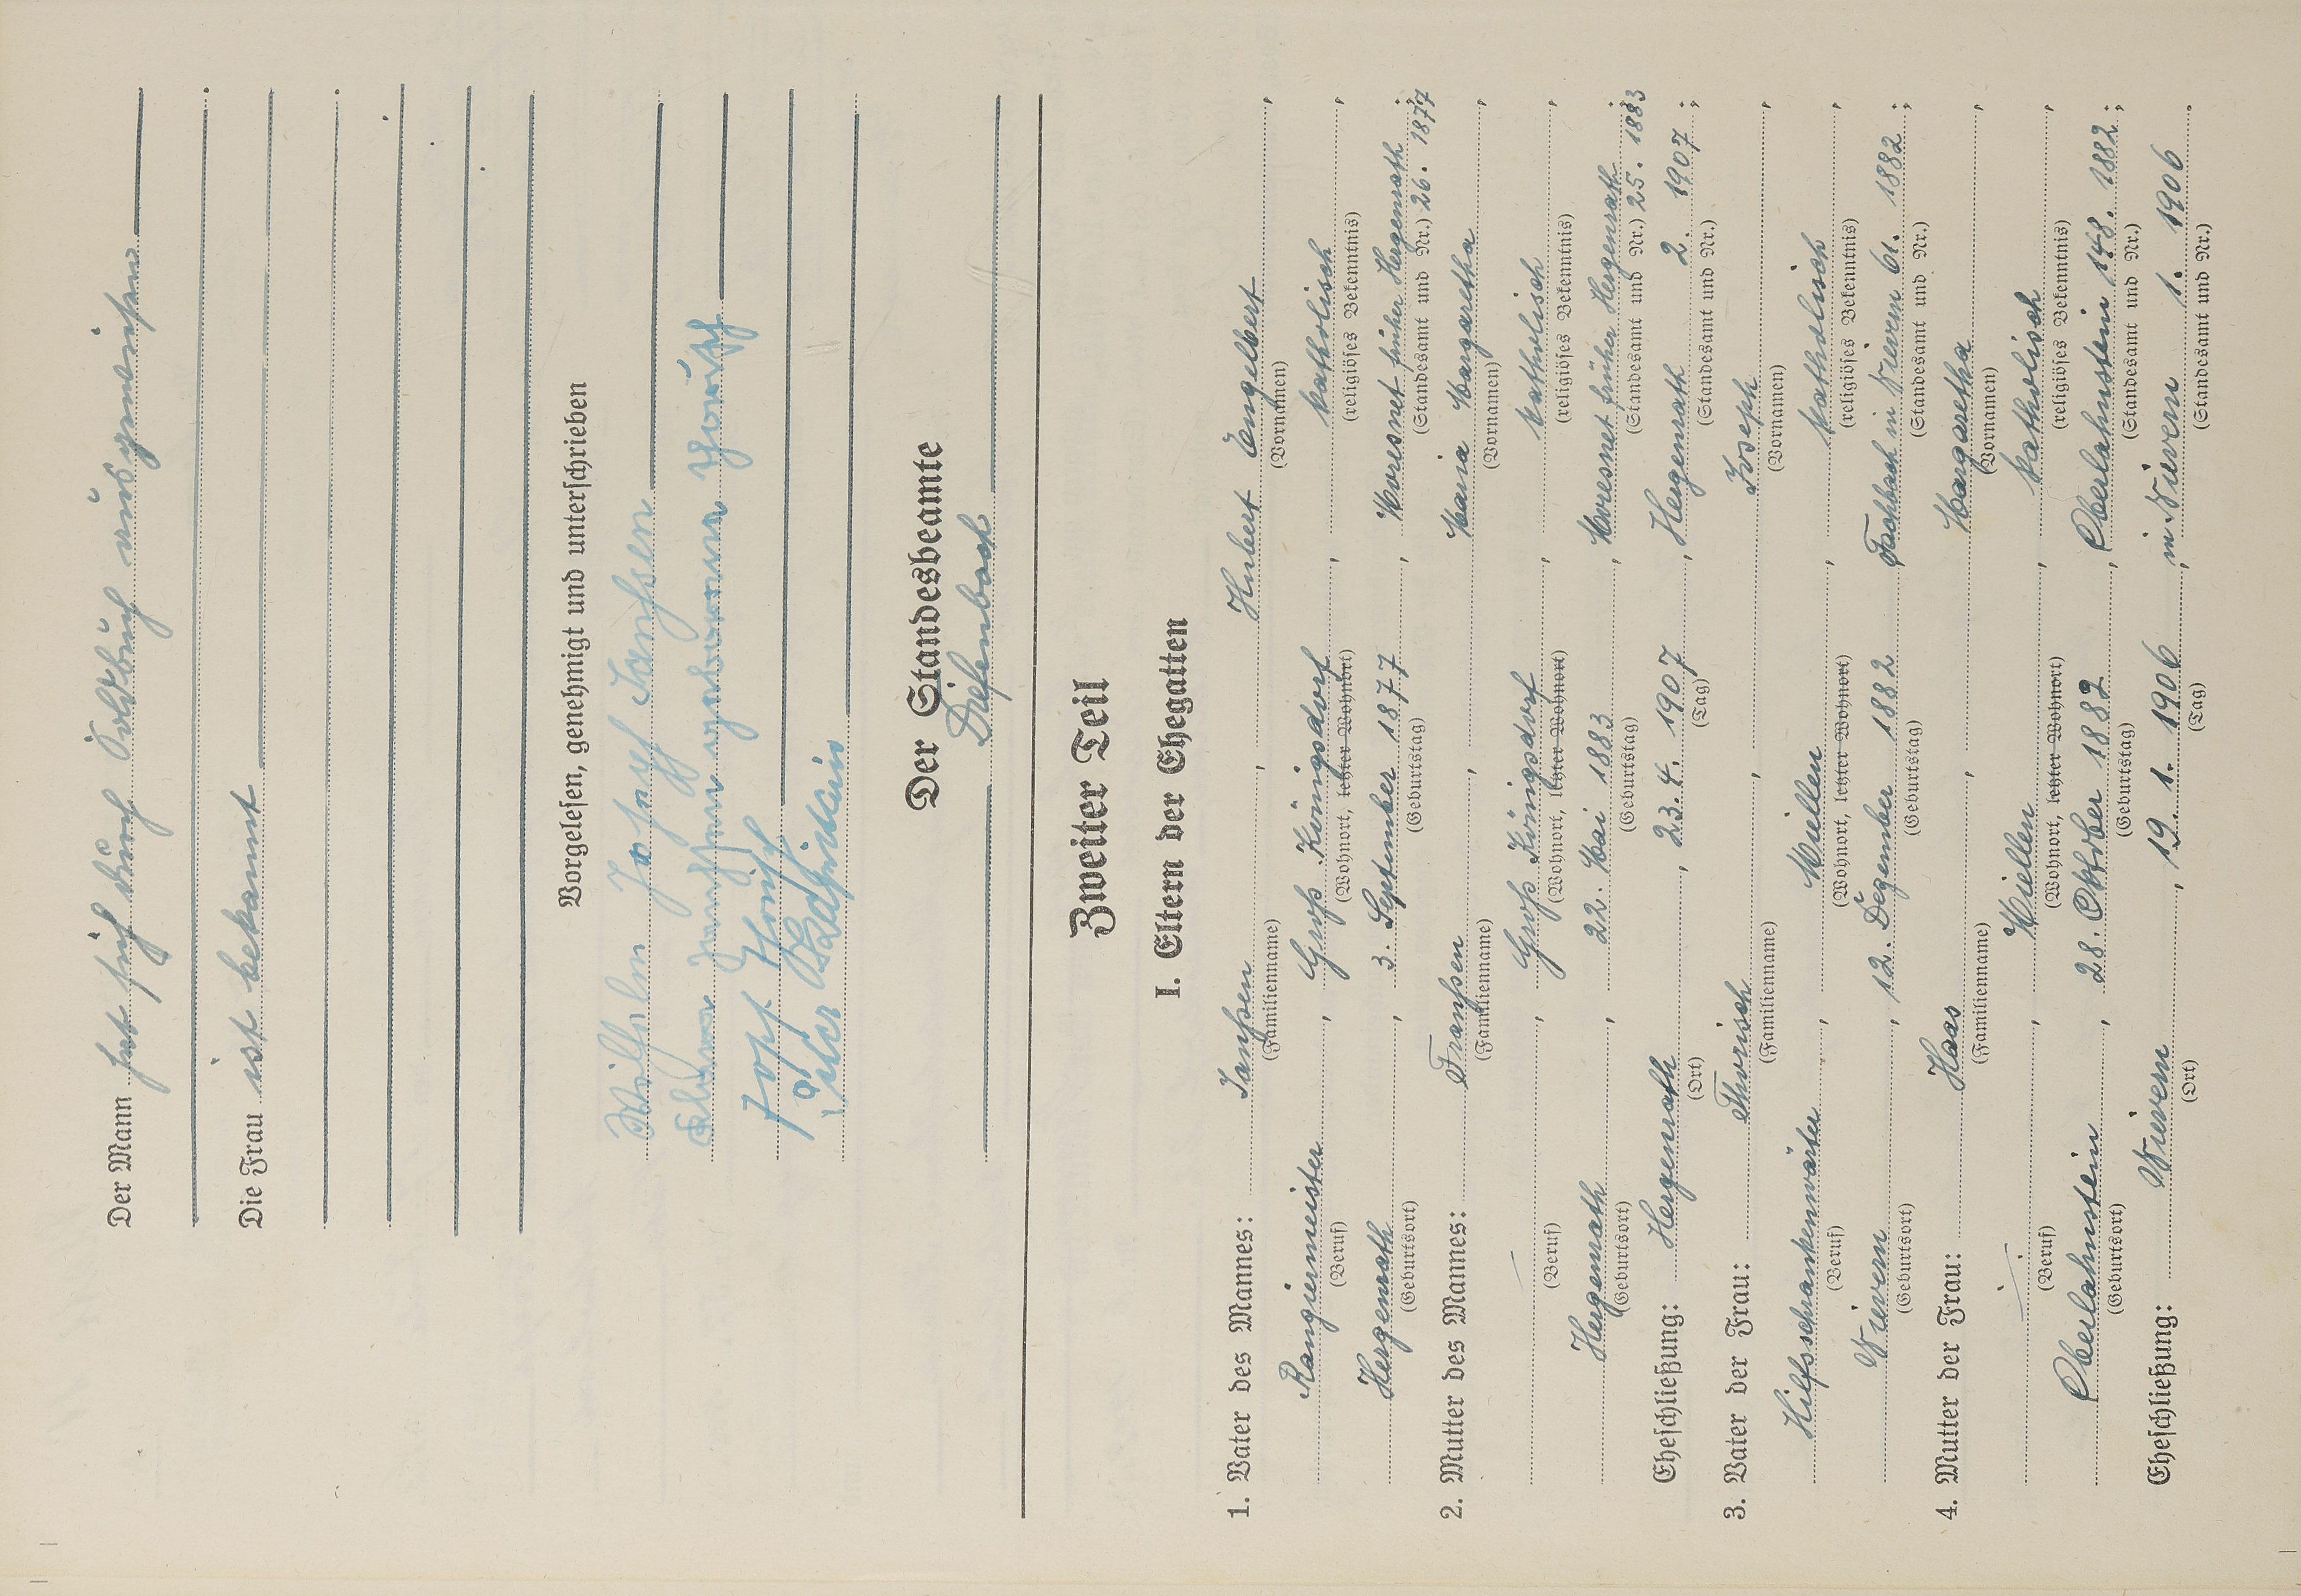 Der Mann hat sich durch Soldbuch ausgewiesen
Die Frau ist bekannt
Vorgelesen, genehmigt und unterschrieben
Wilhelm Josef Janssen
Janssen geborenen Thorisch
Josef Thorisch
Peter
Der Standesbeamte
Diefenbach
Zweiter Teil
I. Eltern der Ehegatten
1. Vater des Mannes: Janßen Hubert Engelbert,
(Familienname) (Vornamen)
Rangiermeister, Groß Königsdorf, katholisch,
(Beruf) (Wohnort, letzter Wohnort) (religiöses Bekenntnis)
Hergenrath, 3. September 1877, Moresnet früher Hergenrath 26. 1877;
(Geburtsort) (Geburtstag) (Standesamt und Nr.)
2. Mutter des Mannes: Franßen, Maria Margaretha,
(Familienname) (Vornamen)
—, Groß Königsdorf, katholisch,
(Beruf) (Wohnort, letzter Wohnort) (religiöses Bekenntnis)
Hergenrath, 22. Mai 1883, Moresnet früher Hergenrath 25. 1883;
(Geburtsort) (Geburtstag) (Standesamt und Nr.)
Eheschließung: Hergenrath, 23. 4. 1907, Hergenrath 2. 1907;
(Ort) (Tag) (Standesamt und Nr.)
3. Vater der Frau: Thorisch, Joseph,
(Familienname) (Vornamen)
Hilfsschrankenwärter, Miellen, katholisch,
(Beruf) (Wohnort, letzter Wohnort) (religiöses Bekenntnis)
Nievern, 12. Dezember 1882, Fachbach in Nievern 61. 1882;
(Geburtsort) (Geburtstag) (Standesamt und Nr.)
4. Mutter der Frau: Haas, Margaretha,
(Familienname) (Vornamen)
—, Miellen, katholisch,
(Beruf) (Wohnort, letzter Wohnort) (religiöses Bekenntnis)
Oberlahnstein, 28. Oktober 1882, Oberlahnstein 148. 1882;
(Geburtsort) (Geburtstag) (Standesamt und Nr.)
Eheschließung: Nievern, 19. 1. 1906, in Nievern 1. 1906.
(Ort) (Tag) (Standesamt und Nr.)